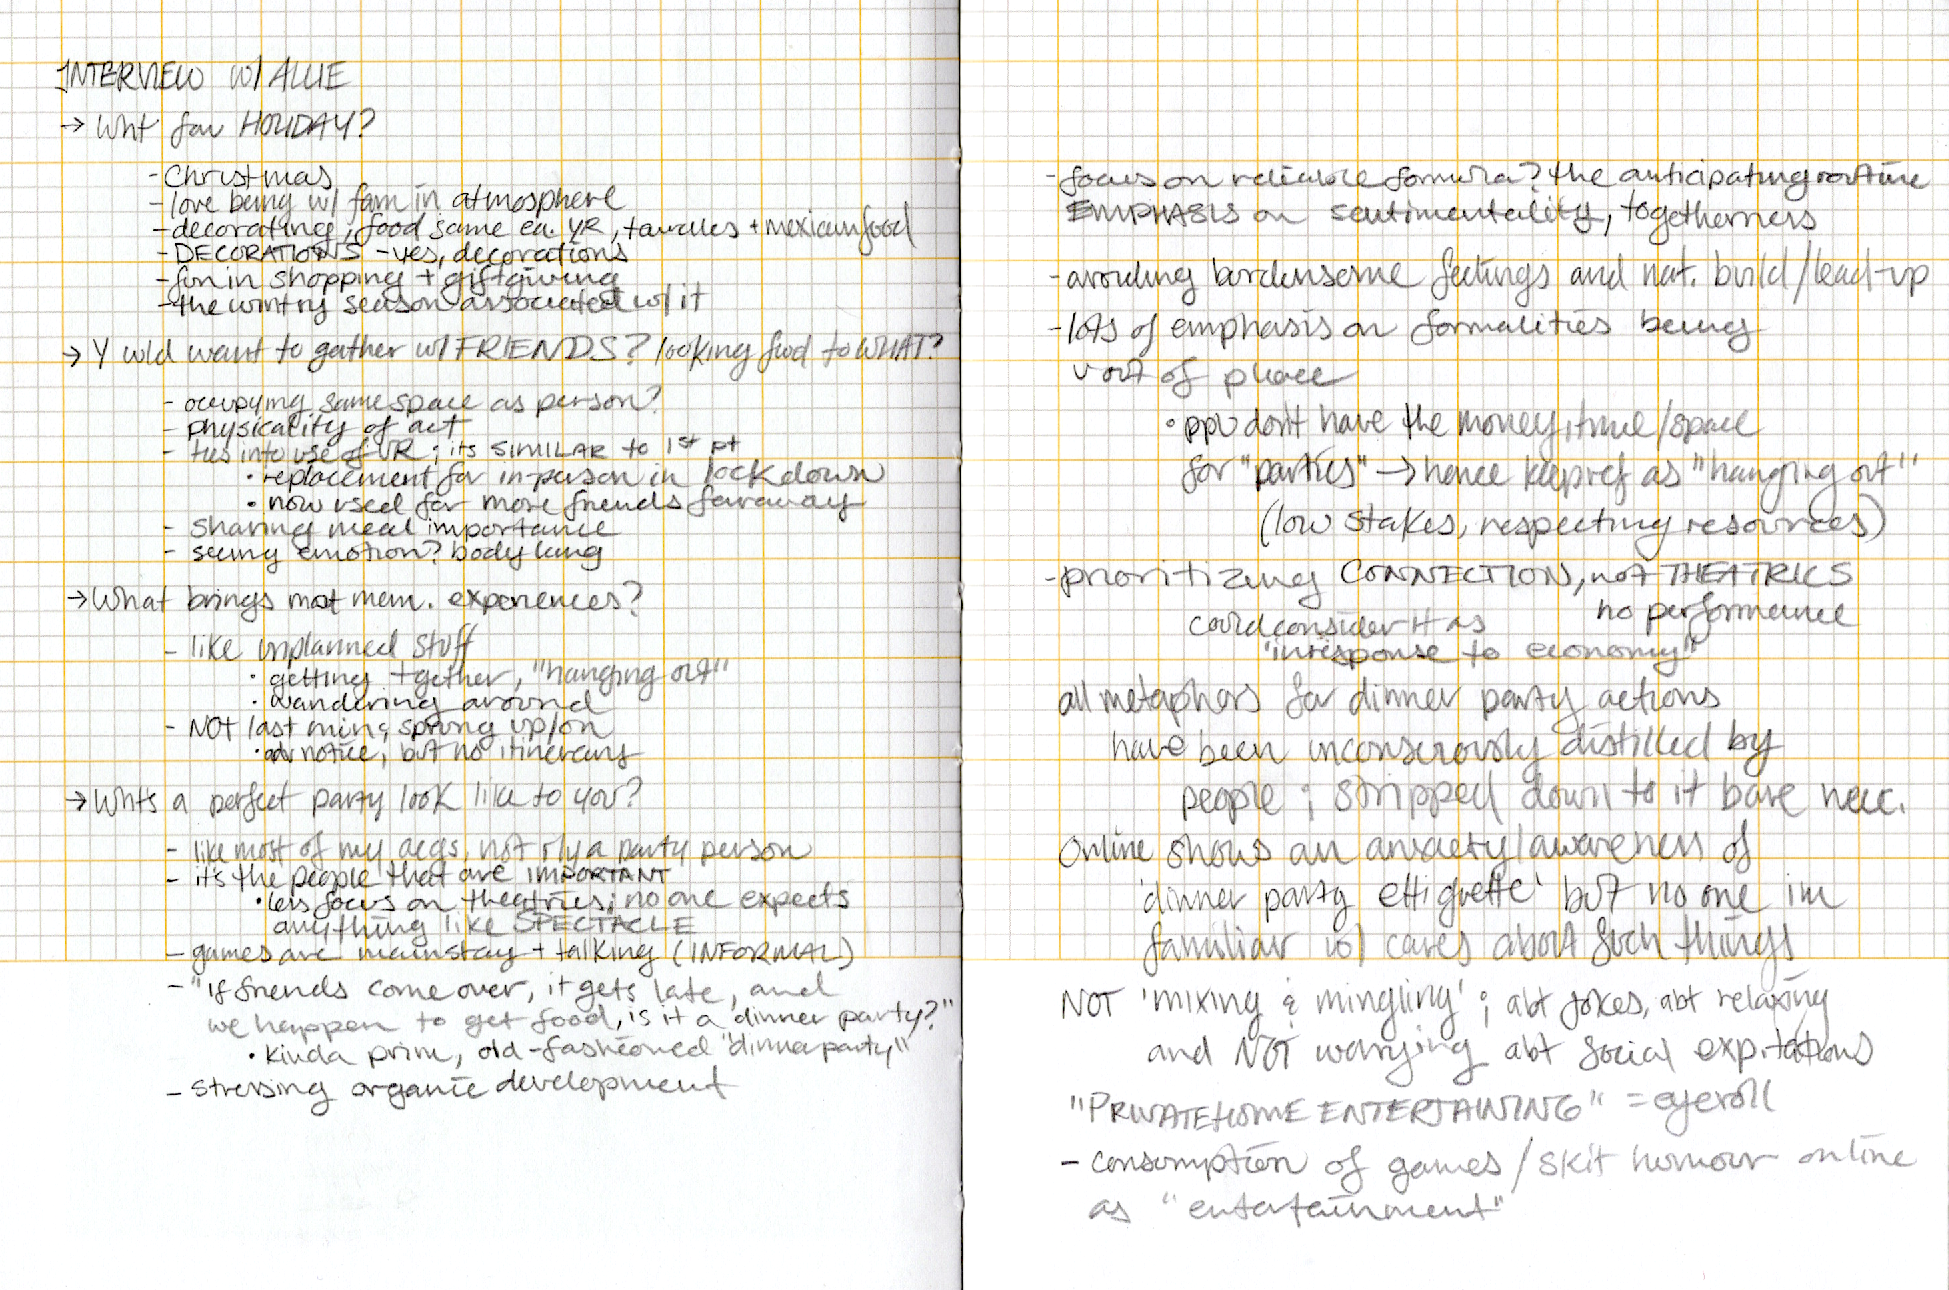 INTERVIEW w/ ALLIE
→ Wht fav HOLIDAY?
- Christmas
- love being w/ fam in atmosphere
- decorating; food same ea. YR, tamales + mexican food
- DECORATIONS - yes, decorations
- fun in shopping + giftgiving
- the wintry season associated w/ it
→ Y wld want to gather w/ FRIENDS? looking fwd to WHAT?
- occupying same space as person?
- physicality of act
- ties into use of VR; its SIMILAR to 1st pt
• replacement for in-person in lockdown
• now used for more friends faraway
- sharing meal importance
- seeing emotion? body lang
→ What brings most mem. experiences?
- like unplanned stuff
• getting tgether, "hanging out"
• wandering around
- NOT last min; sprung up/on
• adv notice, but no itinerary
→ Whts a perfect party look like to you?
- like most of my aegs, not rly a party person
- it's the people that are IMPORTANT
• less focus on theatrics; no one expects
anything like SPECTACLE
- games are mainstay + talking (INFORMAL)
- "If friends come over, it gets late, and
we happen to get food, is it a dinner party?"
• kinda prim, old-fashioned "dinner party"
- stressing organic development
- focus on reliable formula? the anticipating routine
EMPHASIS on sentimentality, togetherness
- avoiding burdensome feelings and nat. build/lead-up
- lots of emphasis on formalities being
out of place
• ppl don't have the money, time/space
for "parties" → hence keep ref as "hanging out"
(low stakes, respecting resources)
- prioritizing CONNECTION, not THEATRICS
no performance
could consider it as
'in response to economy"
all metaphors for dinner party actions
have been unconsciously distilled by
people; stripped down to it bare necc.
Online shows an anxiety/awareness of
'dinner party ettiquette' but no one im
familiar w/ cares about such things
NOT 'mixing & mingling'; abt jokes, abt relaxing
and NOT worrying abt social expitations
"PRIVATE HOME ENTERTAINING" = eyeroll
- consumption of games/skit humour online
as "entertainment"